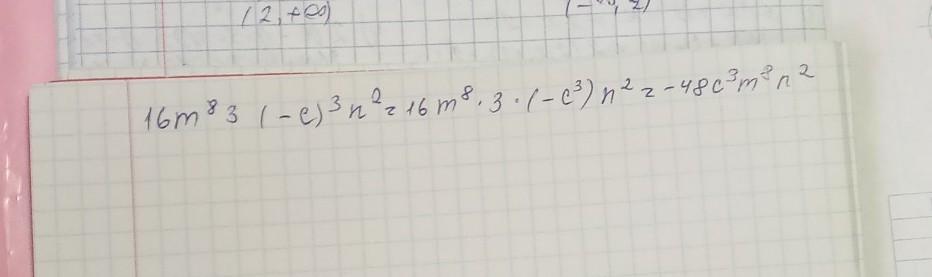 (2, +∞)
16m⁸3 (-c)³n² = 16m⁸ · 3 · (-c³) n² = -48c³m⁸n²